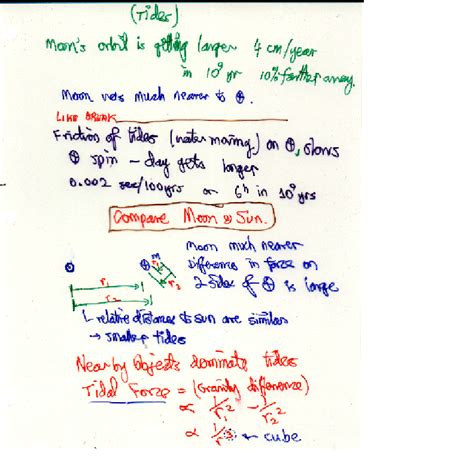 (Tides)
Moon's orbit is getting larger 4 cm/year
in 10⁹ yr 10% farther away.
Moon was much nearer to ⊕.
LIKE BREAK
Friction of tides (water moving) on ⊕, slows
⊕ spin — day gets longer
0.002 sec/100yrs or 6ʰ in 10⁹ yrs
Compare Moon & Sun.
moon much nearer
difference in force on
2 sides of ⊕ is large
⊕ m
r₁ r₂
r₁
r₂
relative distances to Sun are similar
→ smaller tides
Nearby Objects dominate tides
Tidal Force = (Gravity difference)
∝ 1/r₁² − 1/r₂²
∝ 1/r³ ← cube